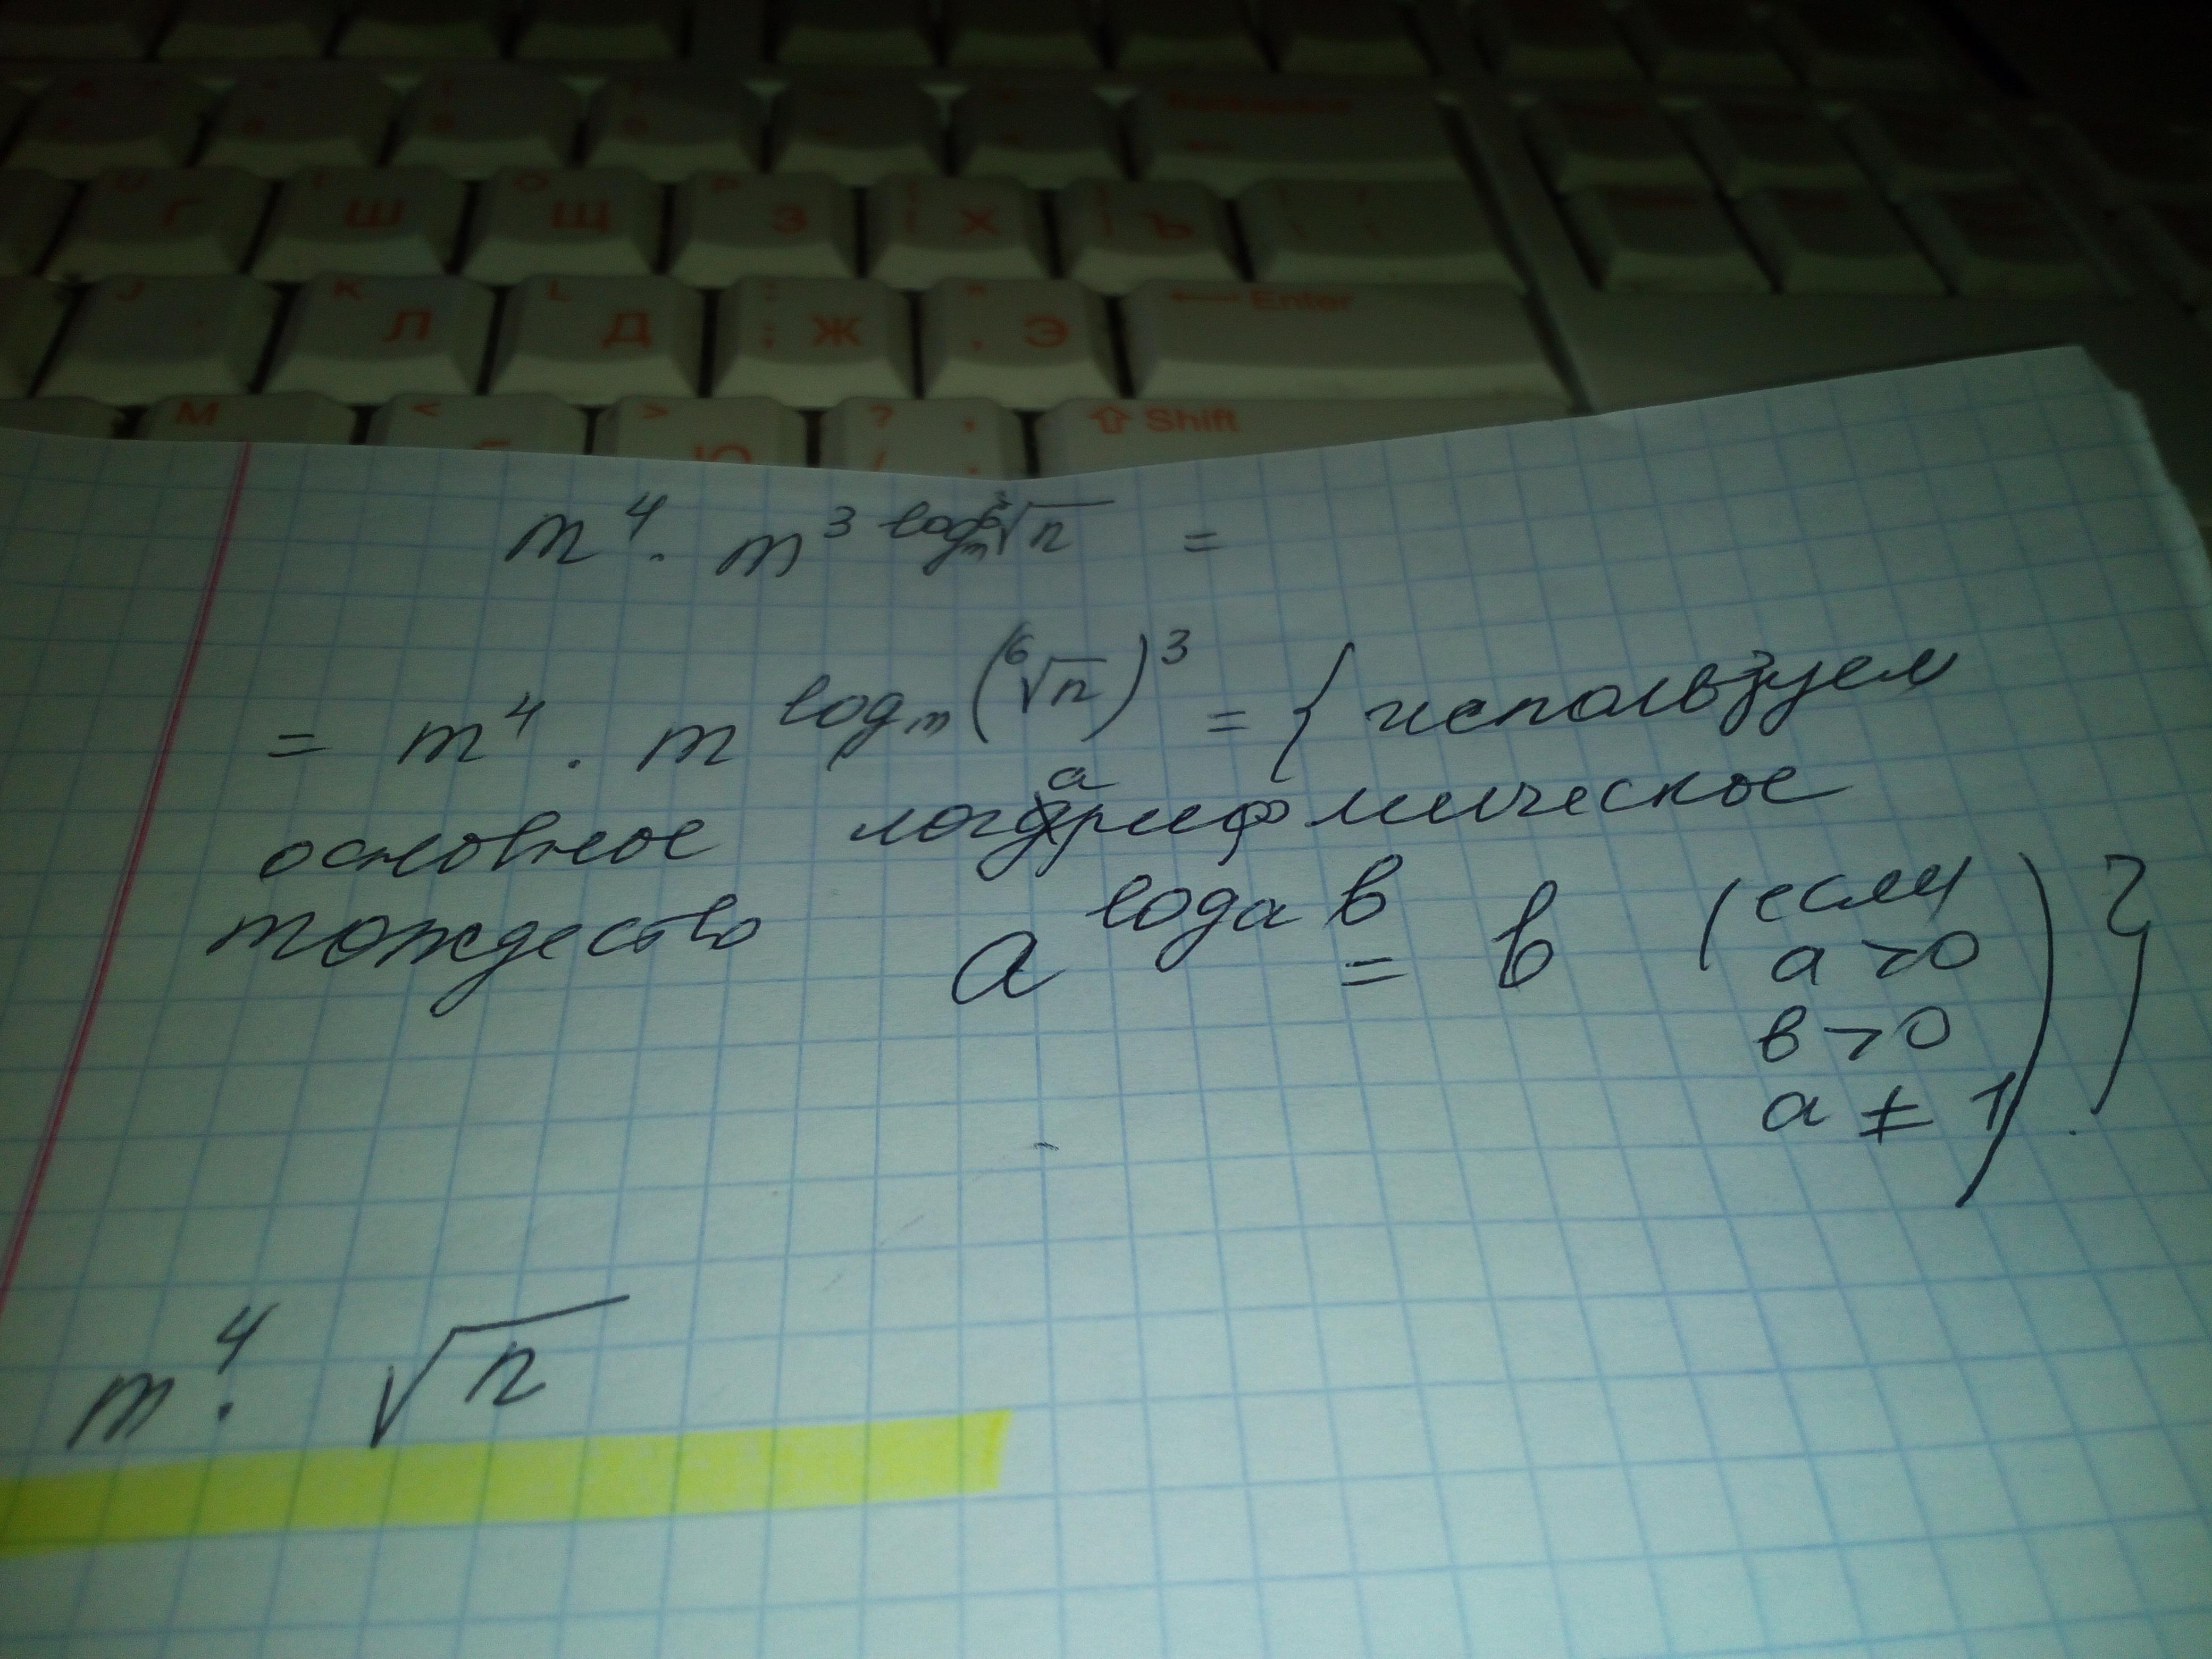 Г Ш O Щ З [ Х ] Ъ
J K Л L Д : ; Ж , Э ← Enter
M < > Ю ? / , ⇧ Shift
m⁴ · m^(3 log_m ⁶√n) =
= m⁴ · m^(log_m (⁶√n)³) = { используем
основное логарифмическое
тождество a^(log_a b) = b (если
a > 0
b > 0
a ≠ 1) }
m⁴ · √n